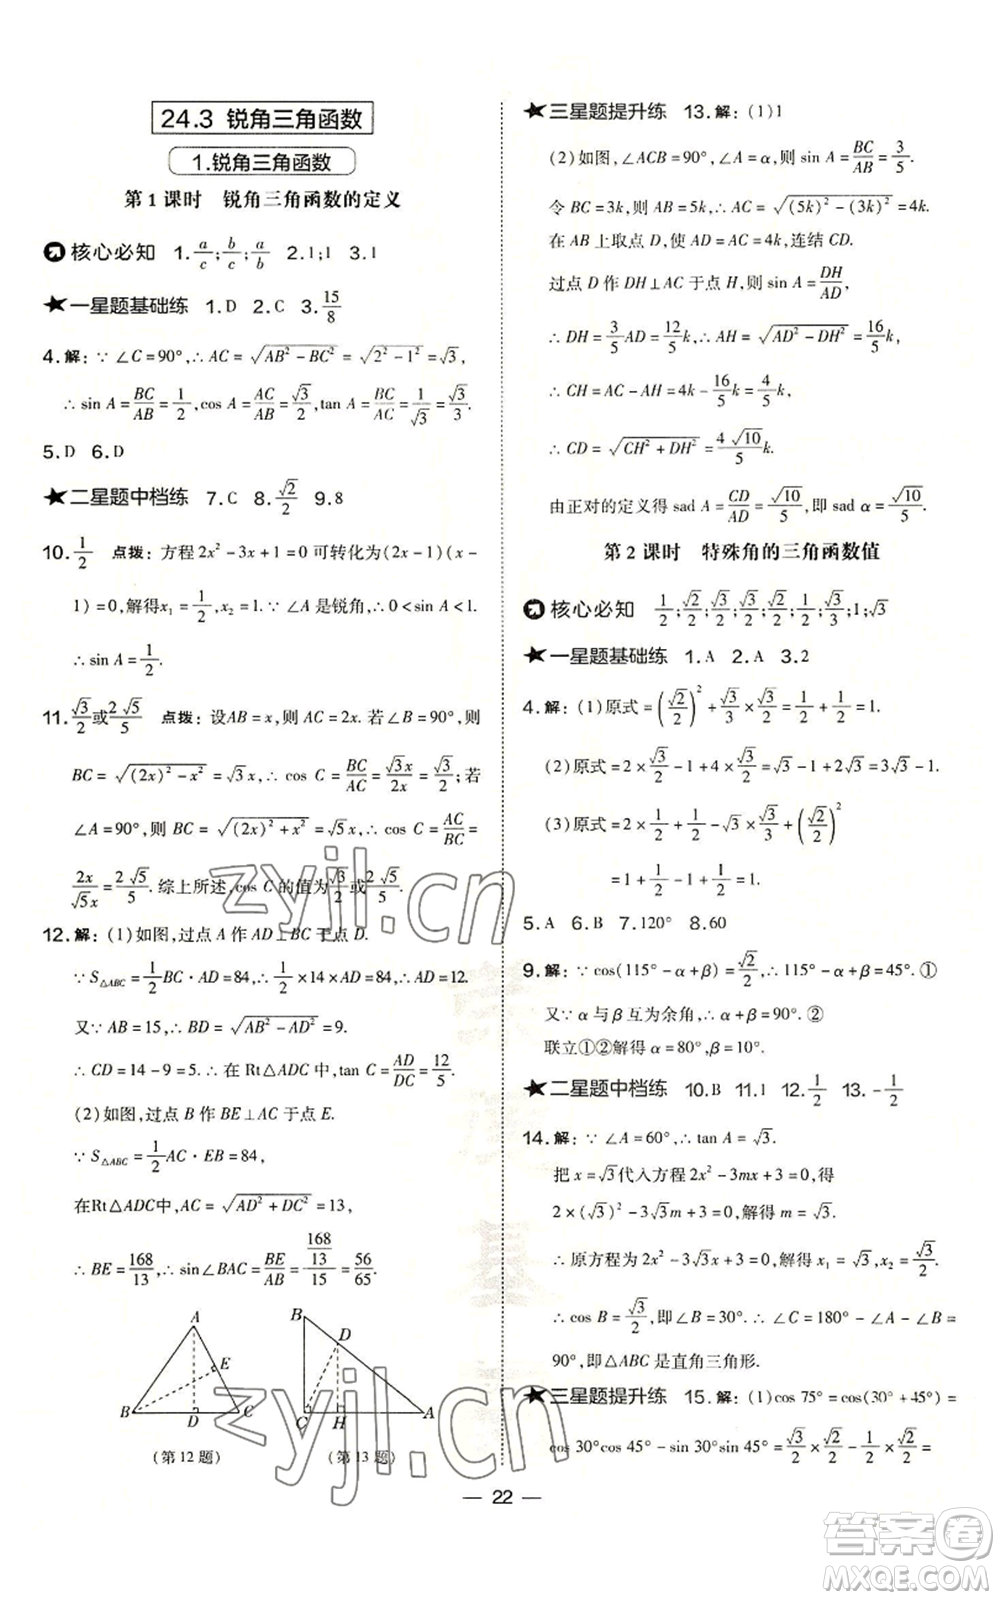 24.3 锐角三角函数
1.锐角三角函数
第1课时 锐角三角函数的定义
核心必知 1. a/c; b/c; a/b 2.1;1 3.1
★一星题基础练 1.D 2.C 3. 15/8
4.解:∵∠C=90°,∴AC=√(AB²-BC²)=√(2²-1²)=√3,
∴sin A=BC/AB=1/2,cos A=AC/AB=√3/2,tan A=BC/AC=1/√3=√3/3.
5.D 6.D
★二星题中档练 7.C 8. √2/2 9.8
10. 1/2 点拨:方程2x²-3x+1=0可转化为(2x-1)(x-
1)=0,解得x₁=1/2,x₂=1.∵∠A是锐角,∴0<sin A<1.
∴sin A=1/2.
11. √3/2或2√5/5 点拨:设AB=x,则AC=2x.若∠B=90°,则
BC=√((2x)²-x²)=√3x,∴cos C=BC/AC=√3x/2x=√3/2;若
∠A=90°,则BC=√((2x)²+x²)=√5x,∴cos C=AC/BC=
2x/√5x=2√5/5.综上所述,cos C的值为√3/2或2√5/5.
12.解:(1)如图,过点A作AD⊥BC于点D.
∵S△ABC=1/2BC·AD=84,∴1/2×14×AD=84,∴AD=12.
又∵AB=15,∴BD=√(AB²-AD²)=9.
∴CD=14-9=5.∴在Rt△ADC中,tan C=AD/DC=12/5.
(2)如图,过点B作BE⊥AC于点E.
∵S△ABC=1/2AC·EB=84,
在Rt△ADC中,AC=√(AD²+DC²)=13,
∴BE=168/13,∴sin∠BAC=BE/AB=(168/13)/15=56/65.
A
E
B D C
(第12题)
B
D
C H A
(第13题)
★三星题提升练 13.解:(1)1
(2)如图,∠ACB=90°,∠A=α,则sin A=BC/AB=3/5.
令BC=3k,则AB=5k,∴AC=√((5k)²-(3k)²)=4k.
在AB上取点D,使AD=AC=4k,连结CD.
过点D作DH⊥AC于点H,则sin A=DH/AD,
∴DH=3/5AD=12/5k,∴AH=√(AD²-DH²)=16/5k,
∴CH=AC-AH=4k-16/5k=4/5k,
∴CD=√(CH²+DH²)=4√10/5k.
由正对的定义得sad A=CD/AD=√10/5,即sad α=√10/5.
第2课时 特殊角的三角函数值
核心必知 1/2; √2/2; √3/2; √3/2; √2/2; 1/2; √3/3;1;√3
★一星题基础练 1.A 2.A 3.2
4.解:(1)原式=(√2/2)²+√3/3×√3/2=1/2+1/2=1.
(2)原式=2×√3/2-1+4×√3/2=√3-1+2√3=3√3-1.
(3)原式=2×1/2+1/2-√3×√3/3+(√2/2)²
=1+1/2-1+1/2=1.
5.A 6.B 7.120° 8.60
9.解:∵cos(115°-α+β)=√2/2,∴115°-α+β=45°.①
又∵α与β互为余角,∴α+β=90°.②
联立①②解得α=80°,β=10°.
★二星题中档练 10.B 11.1 12. 1/2 13. -1/2
14.解:∵∠A=60°,∴tan A=√3.
把x=√3代入方程2x²-3mx+3=0,得
2×(√3)²-3√3m+3=0,解得m=√3.
∴原方程为2x²-3√3x+3=0,解得x₁=√3,x₂=√3/2.
∴cos B=√3/2,即∠B=30°.∴∠C=180°-∠A-∠B=
90°,即△ABC是直角三角形.
★三星题提升练 15.解:(1)cos 75°=cos(30°+45°)=
cos 30°cos 45°-sin 30°sin 45°=√3/2×√2/2-1/2×√2/2=
— 22 —
zyjl.cn
zyjl.cn
答案圈
MXQE.COM